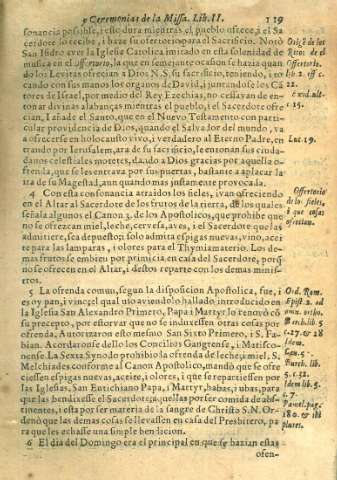 y Ceremonias de la Missa. Lib. II. 119
sonancia possible, i esto dura mientras el pueblo ofrece, i el Sa-
cerdote lo recibe, i haze su ofertorio para el Sacrificio. Notò
San Isidro aver la Iglesia Catolica imitado en esta solenidad de
musica en el Offertorio, la que en semejante ocasion se hazia quan-
do los Levitas ofrecian a Dios N. S. su sacrificio, teniendo, i to
cando con sus manos los organos de David, i juntandose los Cã
tores de Israel, por medio del Rey Ezechias, no cessavan de en-
tonar divinas alabanças mientras el pueblo, i el Sacerdote ofre
cian, I añade el Santo, que en el Nuevo Testamento con parti-
cular providencia de Dios, quando el Salvador del mundo, va
a ofrecerse en holocausto vivo, i verdadero al Eterno Padre, en
trando por Ierusalem, ara de su sacrificio, le entonan sus ciuda-
danos celestiales motetes, dando a Dios gracias por aquella o-
frenda, que se les entrava por sus puertas, bastante a aplacar la
ira de su Magestad, aun quando mas justamente provocada.
4 Con esta consonancia atraidos los fieles, ivan ofreciendo
en el Altar al Sacerdote de los frutos de la tierra, de los quales
señala algunos el Canon 3. de los Apostolicos, que prohibe que
no se ofrezcan miel, leche, cerveza, aves, i el Sacerdote que las
admitiere, sea depuesto; solo admita espigas nuevas, vino, acei
te para las lamparas, i olores para el Thymiamaterio. Los de-
mas frutos se embien por primicia en casa del Sacerdote, porq̃
no se ofrecen en el Altar, i destos reparte con los demas minis-
tros.
5 La ofrenda comun, segun la disposicion Apostolica, fue, i
es oy pan, i vino; el qual uso aviendolo hallado introducido en
la Iglesia San Alexandro Primero, Papa i Martyr, lo renovò cõ
su precepto, por estorvar que no se induxessen otras cosas por
ofrenda. Autorizaron esto mesmo San Sixto Primero, i S. Fa-
bian. Acordaronse dello los Concilios Gangrense, i Matisco-
nense. La Sexta Synodo prohibio la ofrenda de leche, i miel. S.
Melchiades conforme al Canon Apostolico, mandò que se ofre
ciessen espigas nuevas, azeite, i olores, i que se repartiessen por
las Iglesias. San Eutichiano Papa, i Martyr, habas, i ubas, para
que las bendixesse el Sacerdote; aquellas por ser comida de abs-
tinentes, i esta por ser materia de la sangre de Christo S. N. Or-
denò que las demas cosas se llevassen en casa del Presbitero, pa
ra que les echasse una simple bendicion.
6 El dia del Domingo era el principal en que se hazian estas
ofen-
Origẽ de los
Ritos de el
Offertorio.
lib. 2. off. c.
22.
c. 15.
Luc. 19.
Offertorio
de los fieles,
i que cosas
ofrecian.
Ord. Rom.
Epist. 2. ad
omn. ortho.
Burch. lib. 5
c. 27. & 28
Idem.
Can. 5.
Burch. lib.
5. c. 52.
Idem lib. 5.
c. 7.
Pamel. pag.
180. & ibi
plures.